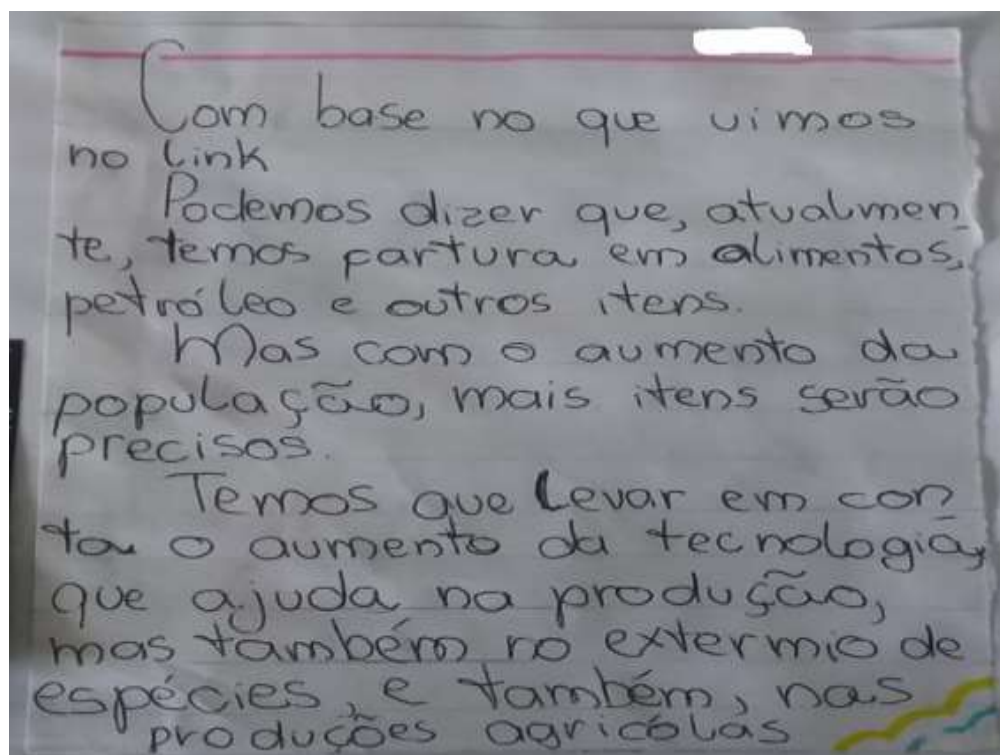 Com base no que vimos
no link
Podemos dizer que, atualmen
te, temos fartura em alimentos,
petróleo e outros itens.
Mas com o aumento da
população, mais itens serão
precisos.
Temos que levar em con
ta o aumento da tecnologia,
que ajuda na produção,
mas também no extermio de
espécies, e também, nas
produções agricólas